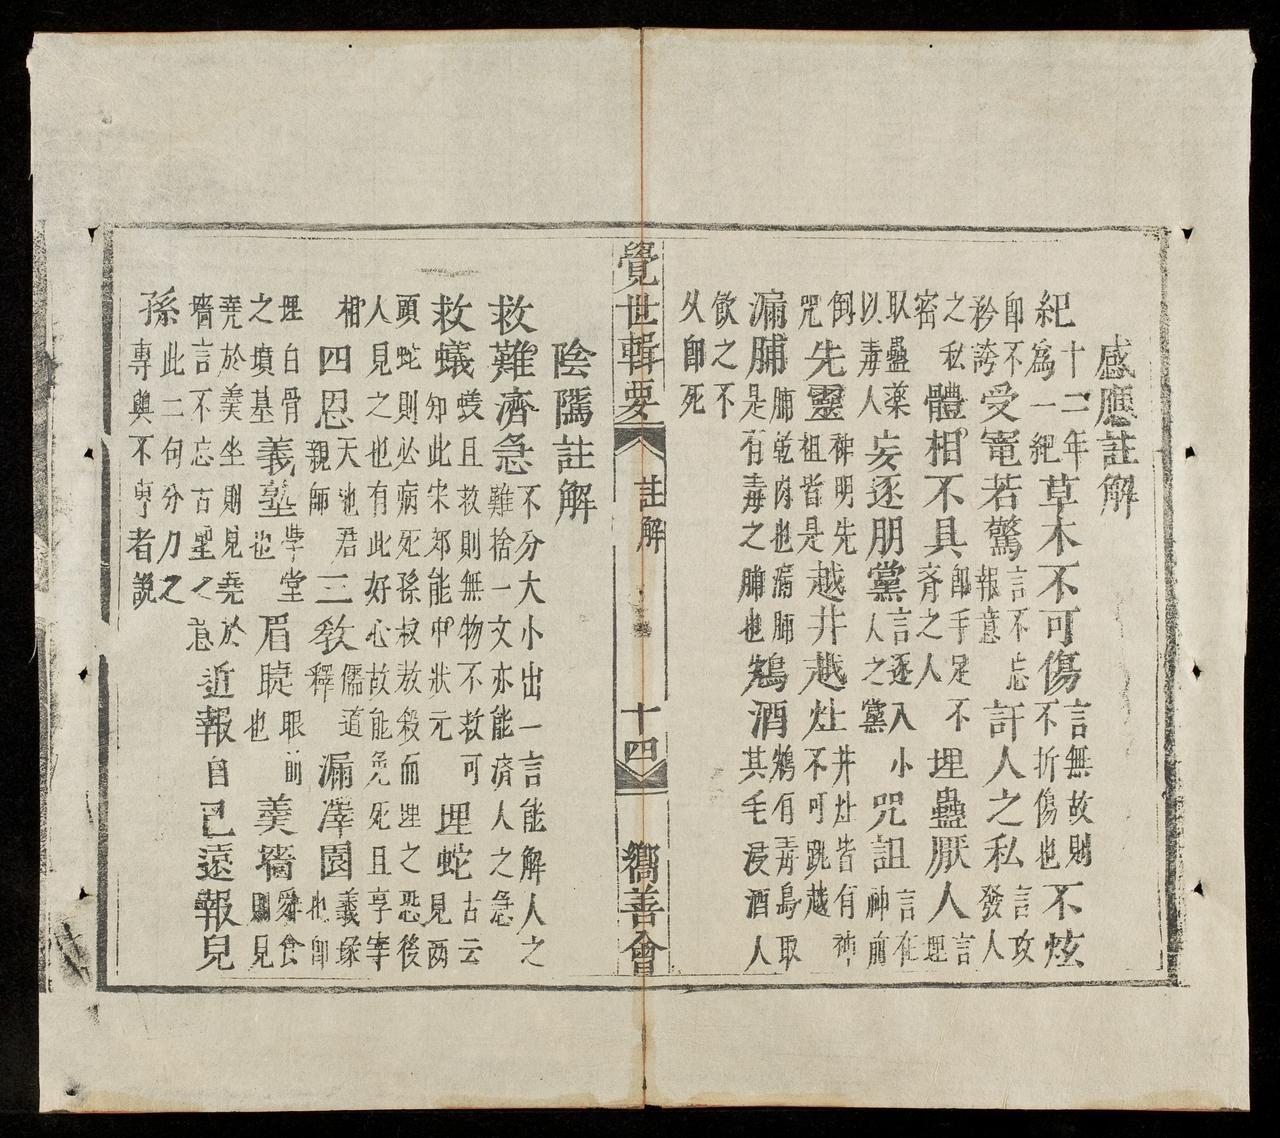 感應註解
紀十二年為一紀草木不可傷言無故則不折傷也不炫
即不矜誇受寵若驚言不忘報意訐人之私言攻發人
之私密體相不具即手足不齊之人埋蠱厭人言埋
取蠱藥以毒人妄逐朋黨言逐入小人之黨咒詛言在神前
倒咒先靈神明先祖皆是越井越灶井灶皆有神不可跳越
漏脯脯乾肉也漏脯是有毒之脯也鴆酒鴆有毒鳥取其毛浸酒人
飲之不久即死
覺世輯要 註解 十四 嚮善會
陰隲註解
救難濟急不分大小出一言能解人之難捨一文亦能濟人之急
救蟻螘且救則無物不救可知此宋郊能中狀元埋蛇古云見兩
頭蛇則必病死孫叔敖殺而埋之恐後人見之也有此好心故能免死且享宰
相四恩天地君親師三教儒道釋漏澤園義塚也即
埋白骨之墳墓義塾學堂也眉睫眼前也羹牆舜食則見
堯於羹坐則見堯於牆言不忘古聖之意近報自己遠報兒
孫此二句分刀之專與不專者說